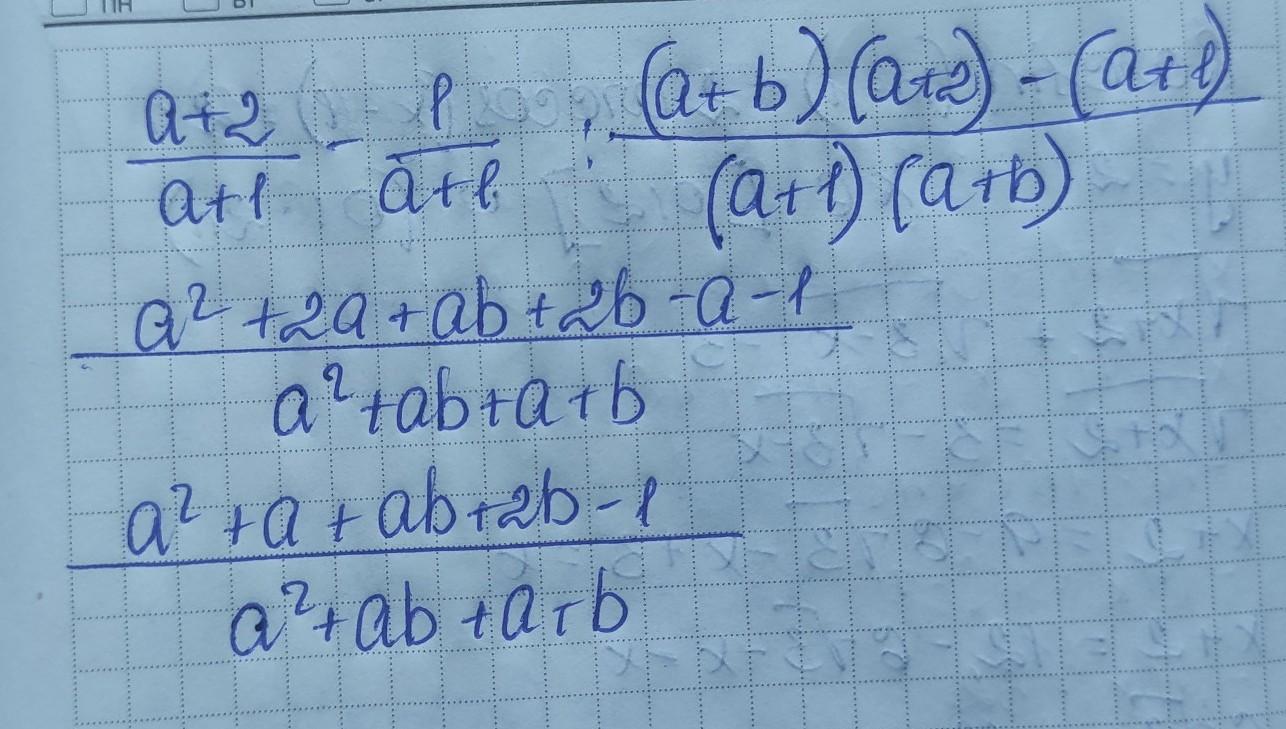 ПН ВТ
\frac{a+2}{a+1} - \frac{1}{a+1} : \frac{(a+b)(a+2)-(a+1)}{(a+1)(a+b)}
\frac{a^2+2a+ab+2b-a-1}{a^2+ab+a+b}
\frac{a^2+a+ab+2b-1}{a^2+ab+a+b}